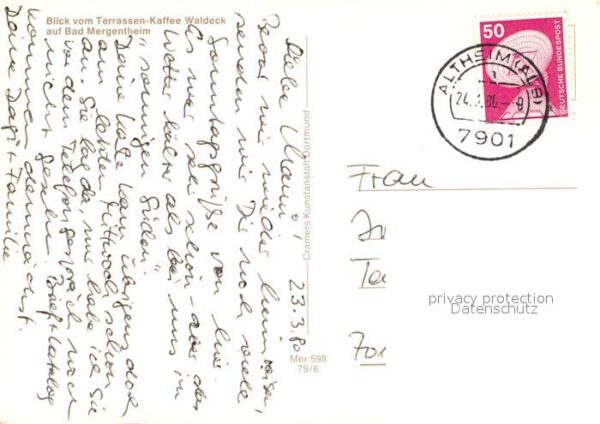 Blick vom Terrassen-Kaffee Waldeck
auf Bad Mergentheim
23.3.80
Liebe Mami!
Bevor wir wieder heimreisen,
senden wir Dir noch viele
Sonntagsgrüße von hier.
Es war sehr schön – aber das
Wetter nicht als bei uns im
"sonnigen Süden".
Deine Karte kam übrigens doch
am letzten Mittwoch schon
an. Sie lag da, nur habe ich sie
vor dem Telefongespräch noch
nicht gesehen. Brief + Katalog
kommen demnächst.
Deine Dagi + Familie
Cramers Kunstanstalt Dortmund
Mer 598
79/6
50
DEUTSCHE BUNDESPOST
ALTHEIM (ALB)
24.3.80 - 9
7901
Frau
Ta
privacy protection
Datenschutz